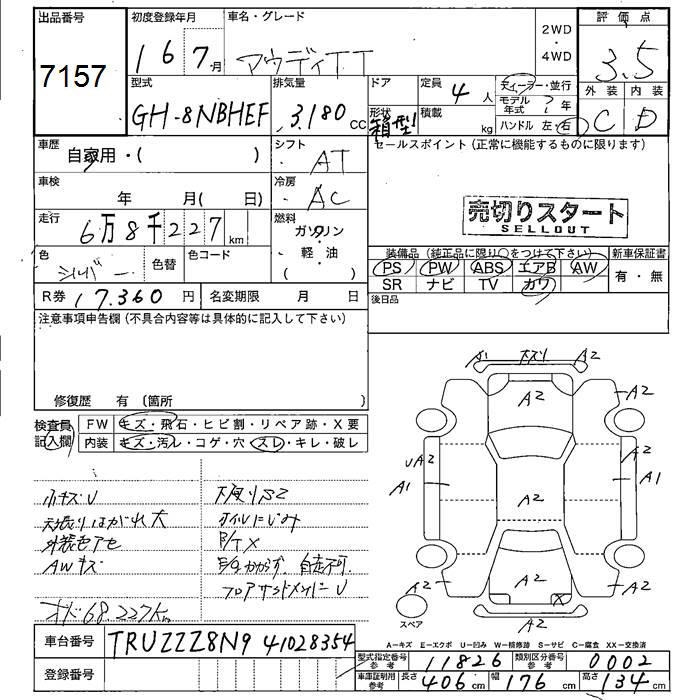 出品番号
7157
初度登録年月
16 7月
車名・グレード
アウディTT
2WD
・
4WD
評価点
3.5
外装 内装
C D
型式
GH-8NBHEF
排気量
3,180 cc
ドア
形状
箱型
定員
4 人
積載
kg
ディーラー・並行
モデル年式 ?年
ハンドル 左・右
車歴
自家用・( )
シフト
AT
セールスポイント (正常に機能するものに限ります)
車検
年 月( 日)
冷房
AC
売切りスタート
SELLOUT
走行
6万8千227km
燃料
ガソリン
・
軽油
色
シルバー
色替
色コード
装備品 (純正品に限り○をつけて下さい)
新車保証書
PS PW ABS エアB AW
SR ナビ TV カワ
有・無
R券 17.360円
名変期限 月 日
後日品
注意事項申告欄 (不具合内容等は具体的に記入して下さい)
修復歴 有 (箇所
検査員記入欄
FW キズ・飛石・ヒビ割・リペア跡・X要
内装 キズ・汚レ・コゲ・穴・スレ・キレ・破レ
小キズU
天張りはがれ大
外装色アセ
AWキズ
オド68.227Km
オイルにじみ
P/T X
自走不可
フロアサイドメンバーU
A1 A2
A2
A2
UA2
A1
A2
A1
A2
A2
A2
X
A2
スペア
A-キズ E-エクボ U-凹み W-補修跡 S-サビ C-腐食 XX-交換済
車台番号 TRUZZZ8N9 41028354
登録番号
型式指定番号 参考 11826
類別区分番号 参考 0002
車庫証明用 参考 長さ 406cm 幅 176cm 高さ 134cm